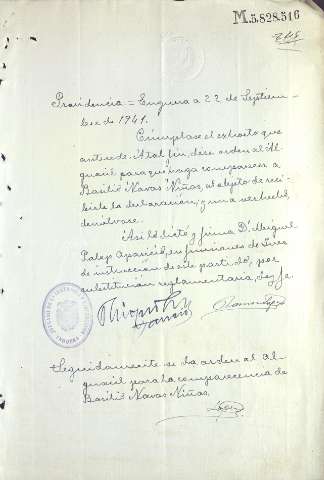 M.5.828.516
Providencia = Enguera a 22 de Septiem-
bre de 1941.
Cúmplase el exhorto que
antecede. A tal fin, dese orden al Al-
guacil para que haga comparecer a
Basilio Navas Niñas, al objeto de reci-
birle la declaración, y una vez hecho,
devuélvase.
Así lo dictó y firma D. Miguel
Palop Aparicio, en funciones de Juez
de instrucción de este partido, por
sustitución reglamentaria, doy fe.
Seguidamente se da orden al al-
guacil para la comparecencia de
Basilio Navas Niñas,